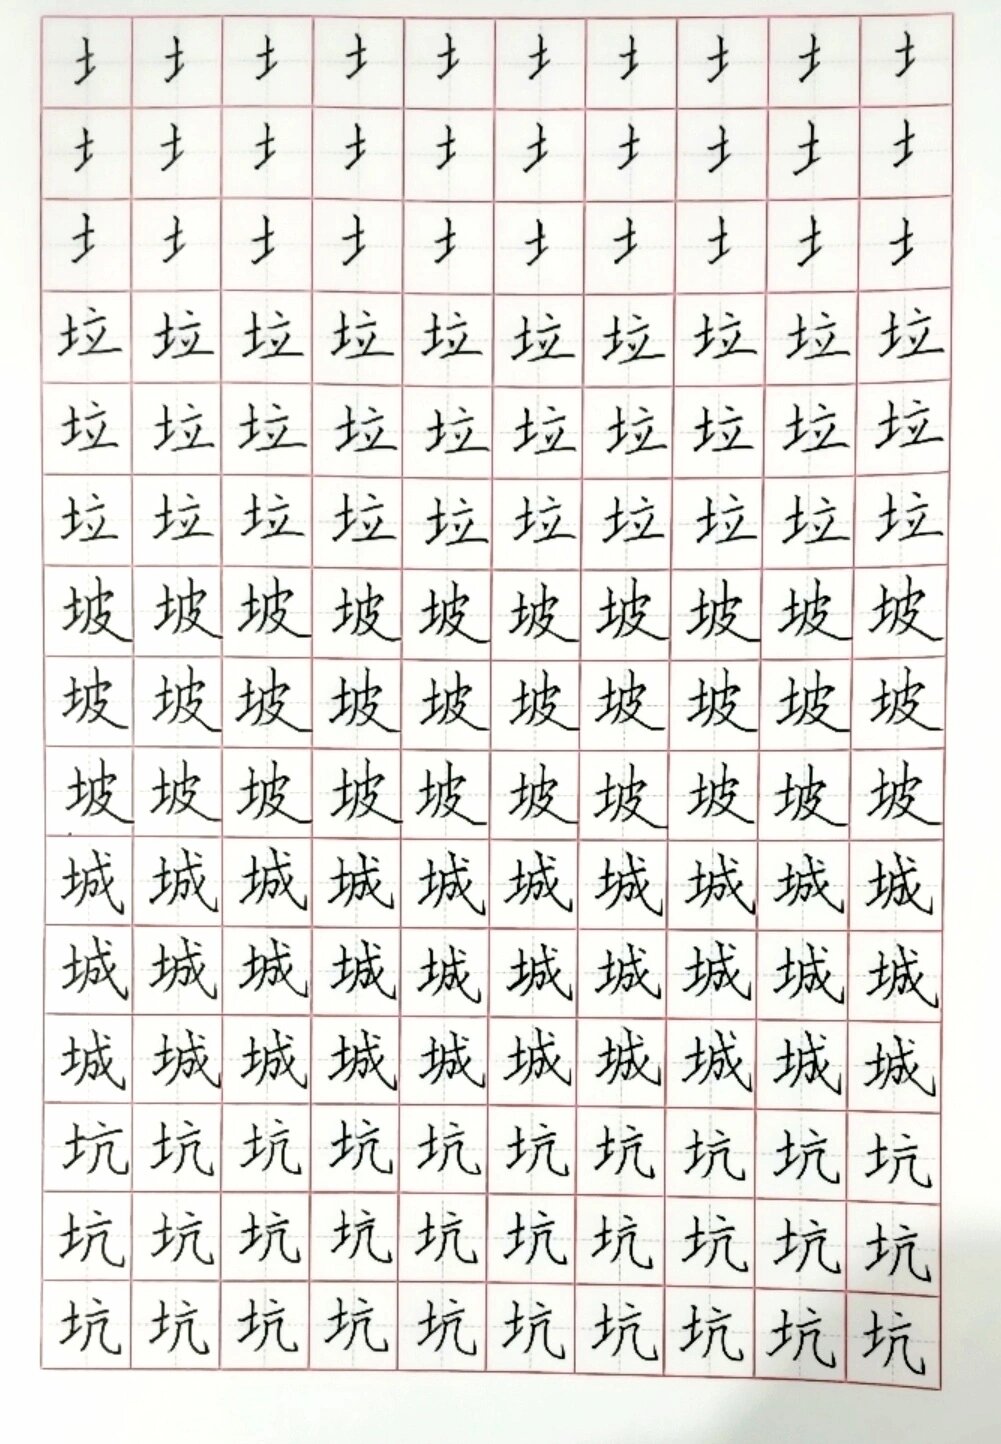 土 土 土 土 土 土 土 土 土 土
土 土 土 土 土 土 土 土 土 土
土 土 土 土 土 土 土 土 土 土
垃 垃 垃 垃 垃 垃 垃 垃 垃 垃
垃 垃 垃 垃 垃 垃 垃 垃 垃 垃
垃 垃 垃 垃 垃 垃 垃 垃 垃 垃
坡 坡 坡 坡 坡 坡 坡 坡 坡 坡
坡 坡 坡 坡 坡 坡 坡 坡 坡 坡
坡 坡 坡 坡 坡 坡 坡 坡 坡 坡
城 城 城 城 城 城 城 城 城 城
城 城 城 城 城 城 城 城 城 城
城 城 城 城 城 城 城 城 城 城
坑 坑 坑 坑 坑 坑 坑 坑 坑 坑
坑 坑 坑 坑 坑 坑 坑 坑 坑 坑
坑 坑 坑 坑 坑 坑 坑 坑 坑 坑